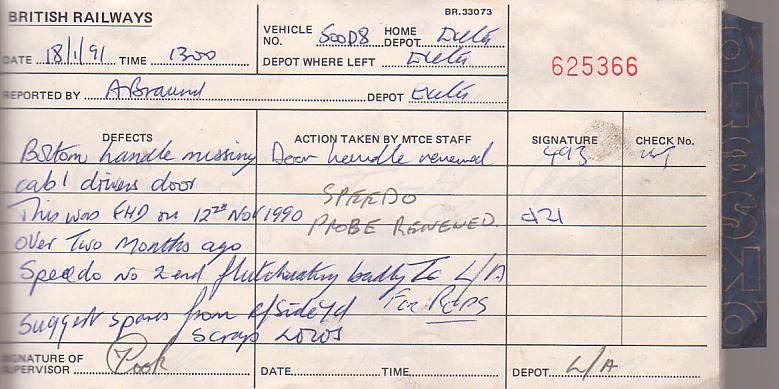 BRITISH RAILWAYS
BR.33073
DATE 18/1/91 TIME 1300
VEHICLE NO. 50008 HOME DEPOT Exeter
DEPOT WHERE LEFT Exeter
625366
REPORTED BY A Braund DEPOT Exeter
DEFECTS ACTION TAKEN BY MTCE STAFF SIGNATURE CHECK No.
Bottom handle missing Door handle renewal 493
cab 1 drivers door
SPEEDO
This was EHD on 12th Nov 1990 PROBE RENEWED. 421
over Two Months ago
Speedo No 2 end fluctuating badly To L/A
For REPS
Suggest spares from R/Side Yd
scrap LOCOS
SIGNATURE OF SUPERVISOR Pook DATE TIME DEPOT L/A